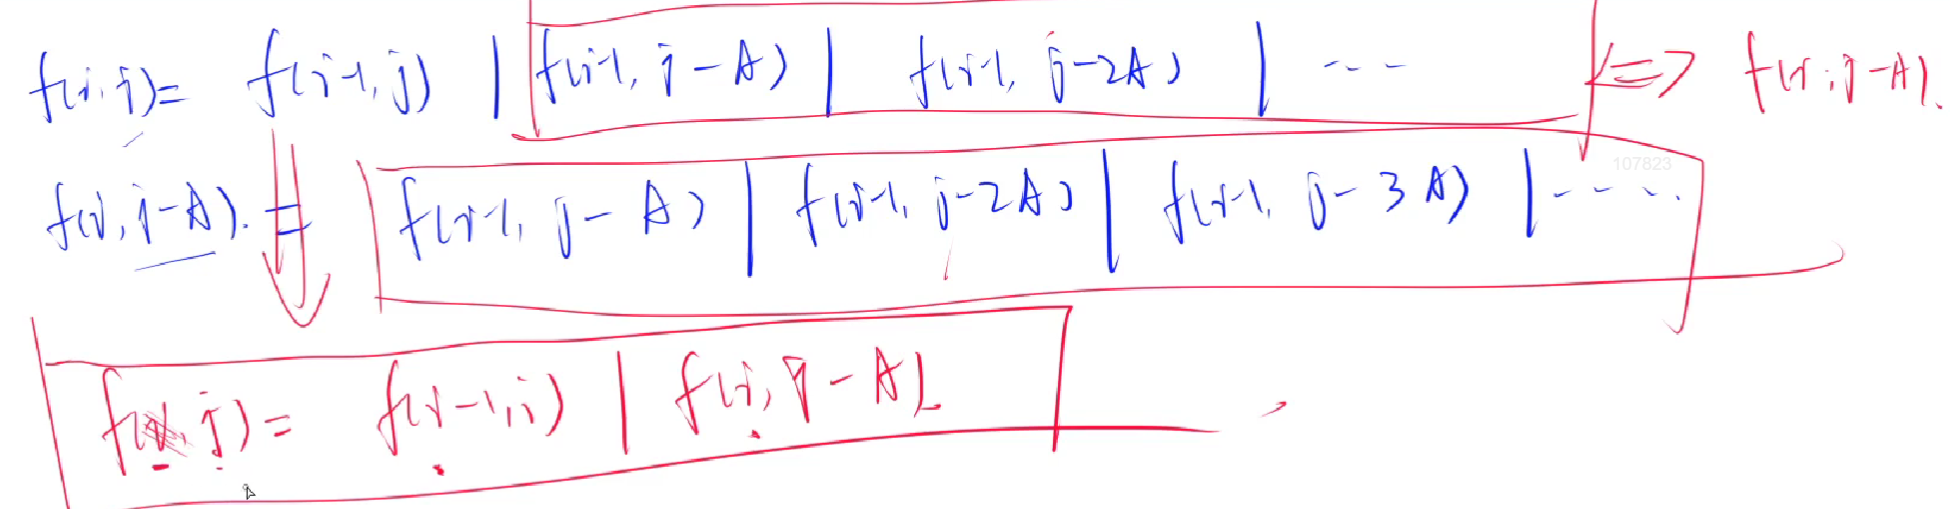 f(i, j) = f(i-1, j) | f(i-1, j-A) | f(i-1, j-2A) | --- <=> f(i, j-A).
107823
f(i, j-A). = f(i-1, j-A) | f(i-1, j-2A) | f(i-1, j-3A) | -----.
f(i, j) = f(i-1, j) | f(i, j-A)